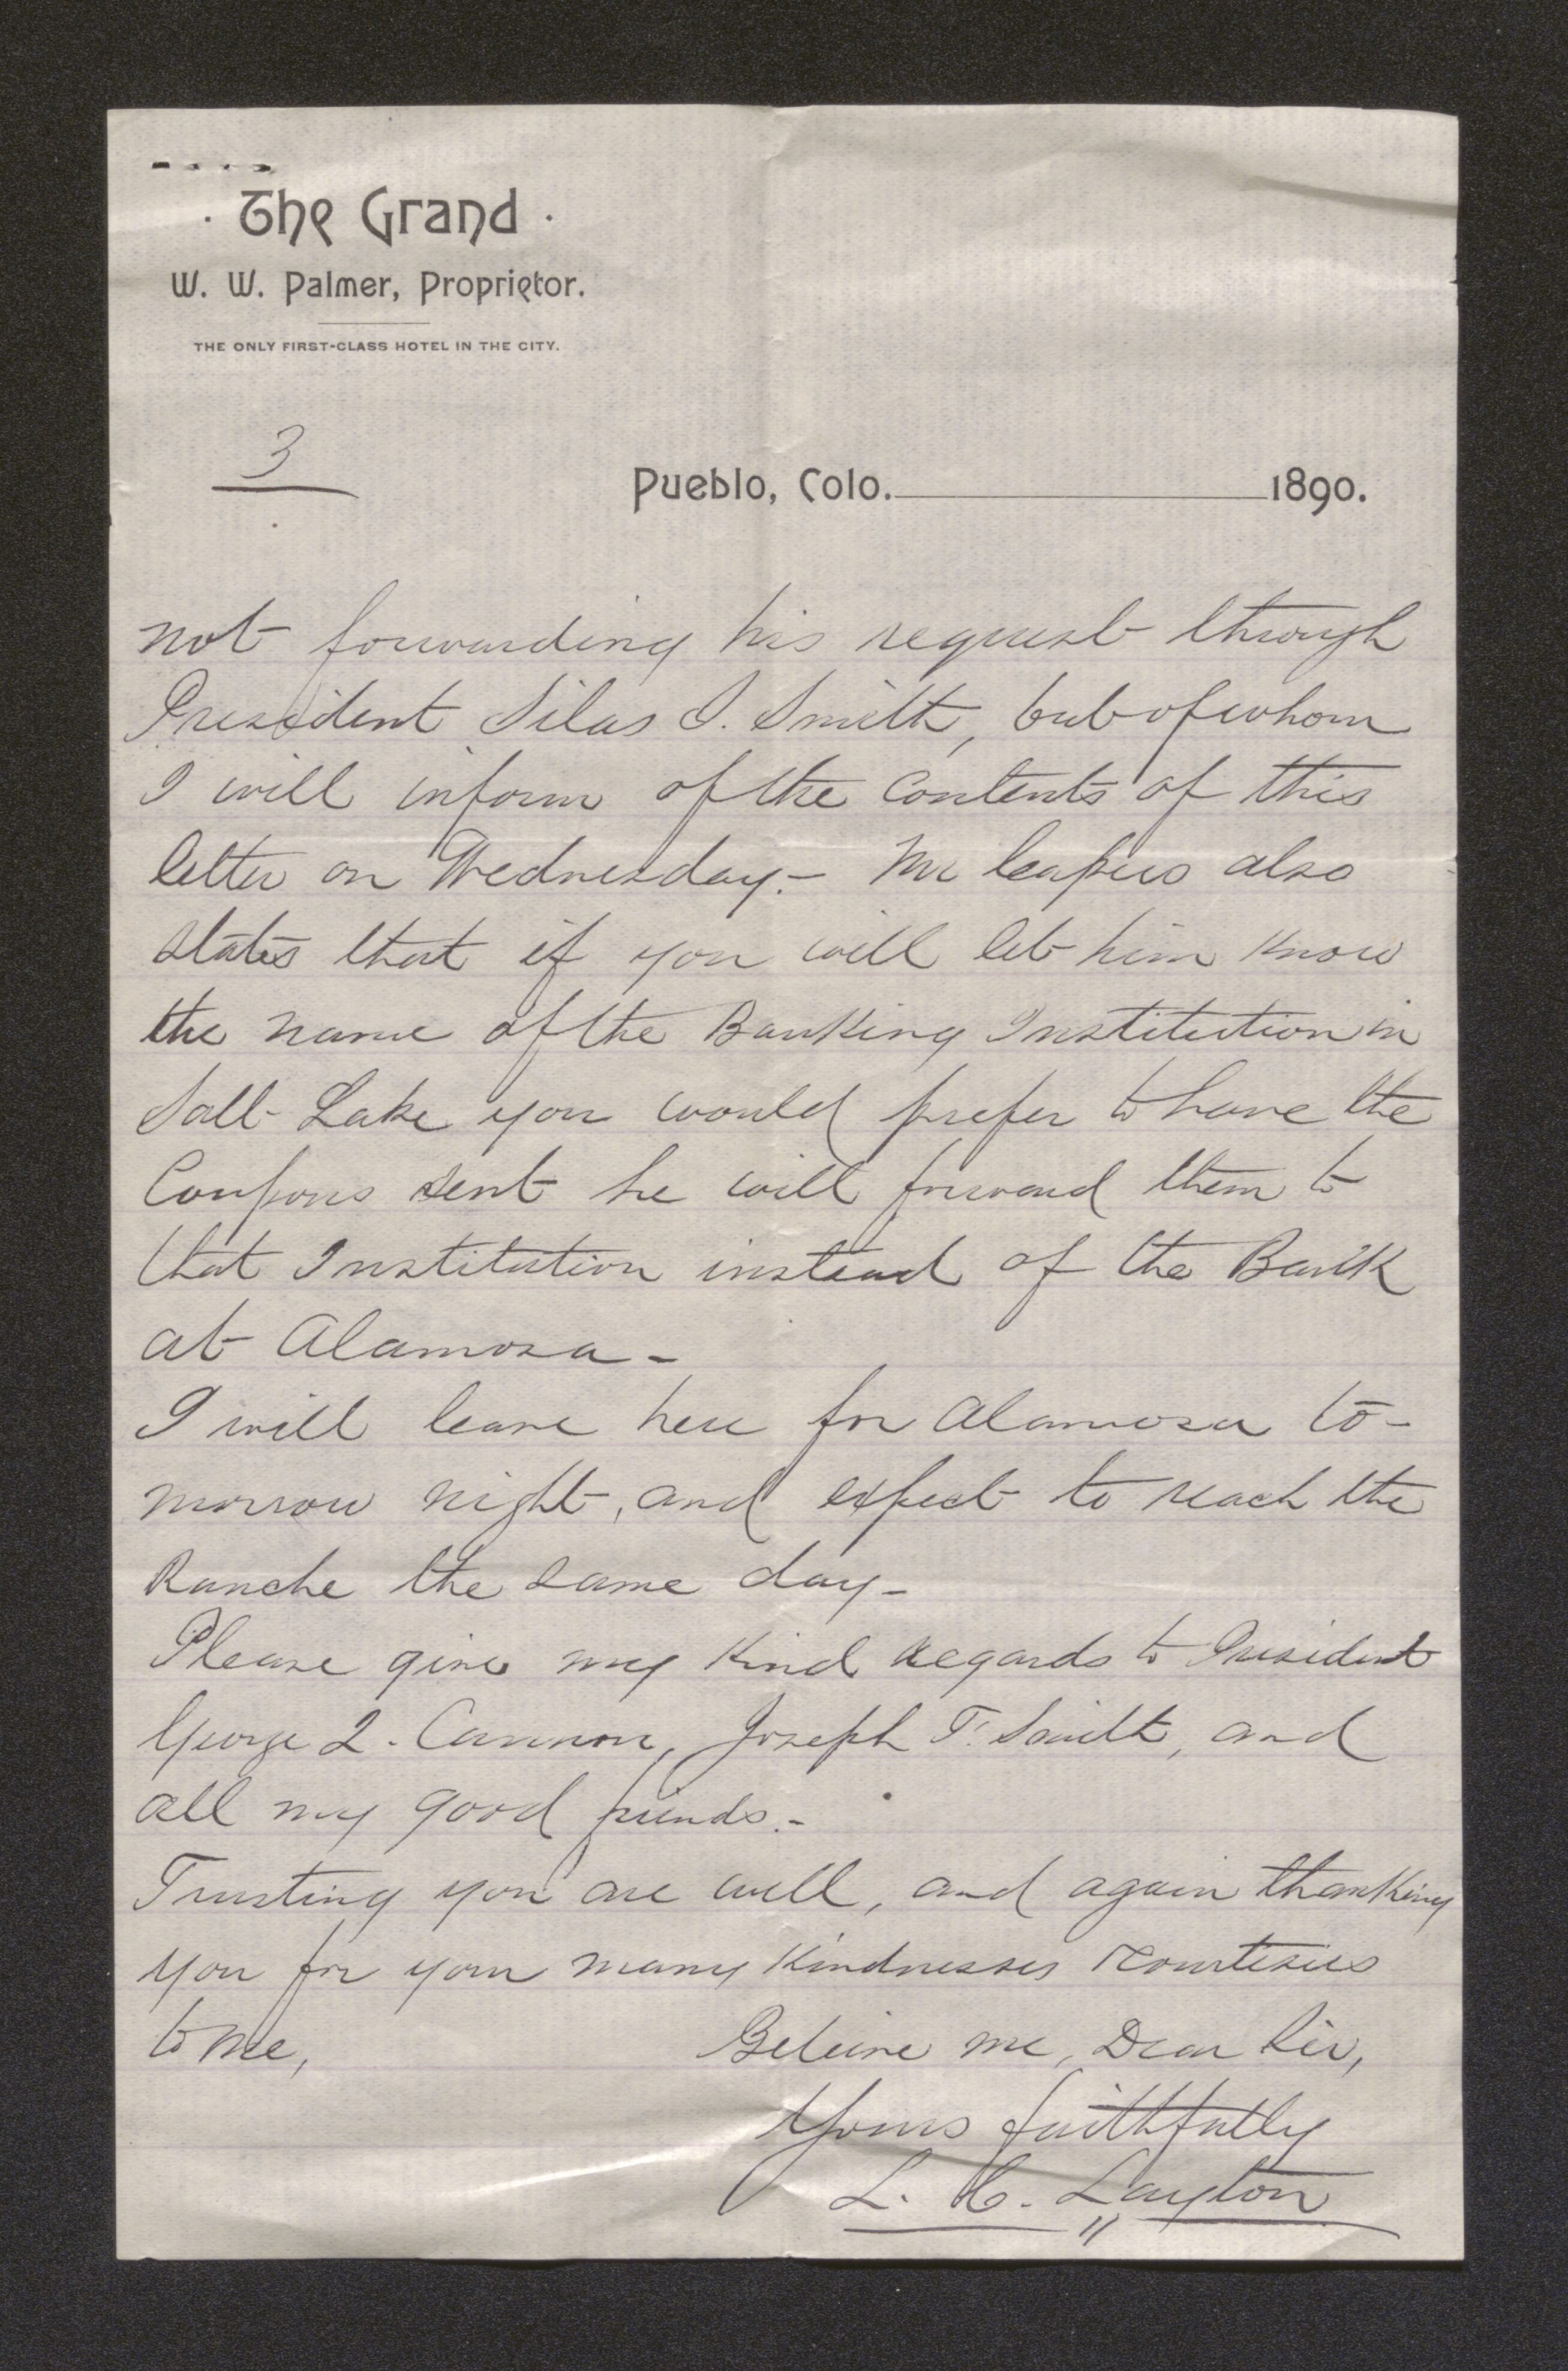 · The Grand ·
W. W. Palmer, Proprietor.
THE ONLY FIRST-CLASS HOTEL IN THE CITY.
3
Pueblo, Colo. 1890.
not forwarding his request through
President Silas S. Smith, but of whom
I will inform of the contents of this
letter on Wednesday.- Mr also
states that if you will let him know
the name of the Banking Institution in
Salt Lake you would prefer to have the
Coupons sent he will forward them to
that Institution instead of the Bank
at Alamosa -
I will leave here for Alamosa to-
morrow night, and expect to reach the
Ranche the same day -
Please give my kind regards to President
George Q. Cannon, Joseph F. Smith, and
all my good friends.-
Trusting you are well, and again thanking
you for your many kindnesses & courtesies
to me,
Believe me, Dear Sir,
Yours faithfully
L. C. Layton